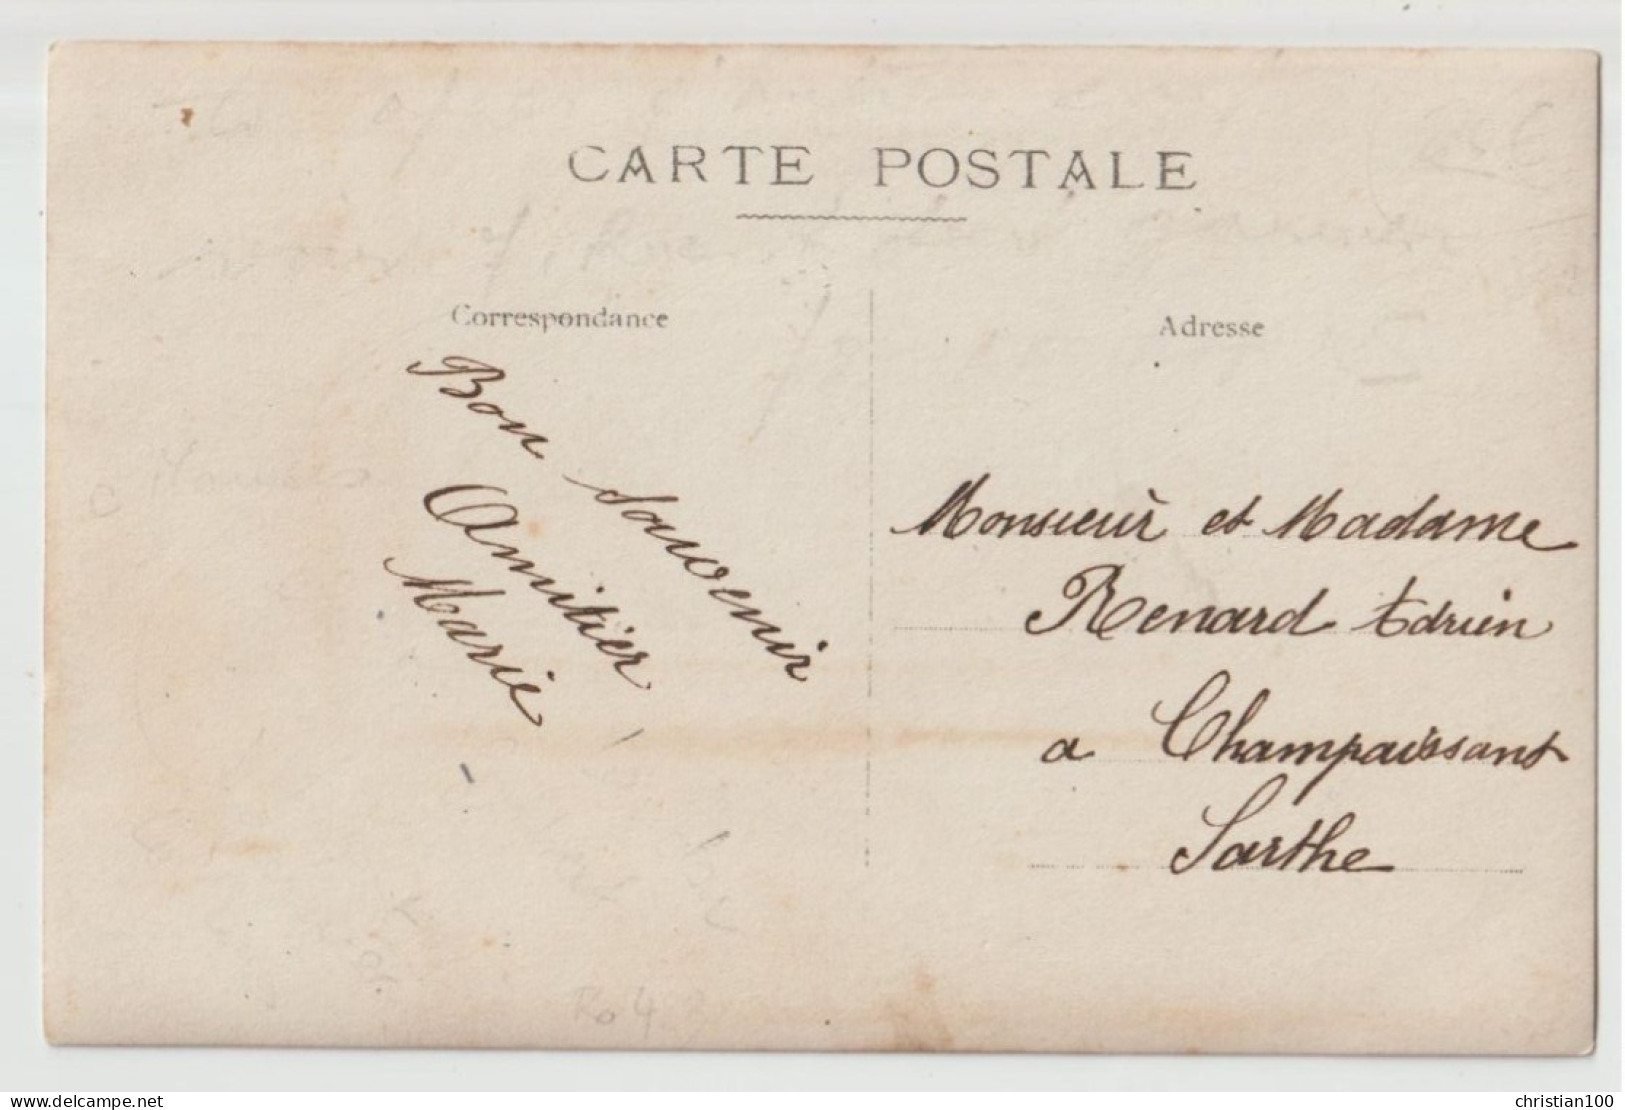 CARTE POSTALE
Correspondance
Bon Souvenir
Amitier
Marie
Adresse
Monsieur et Madame
Renard Adrien
a Champaissant
Sarthe
Ro 4
delcampe.net
christian100